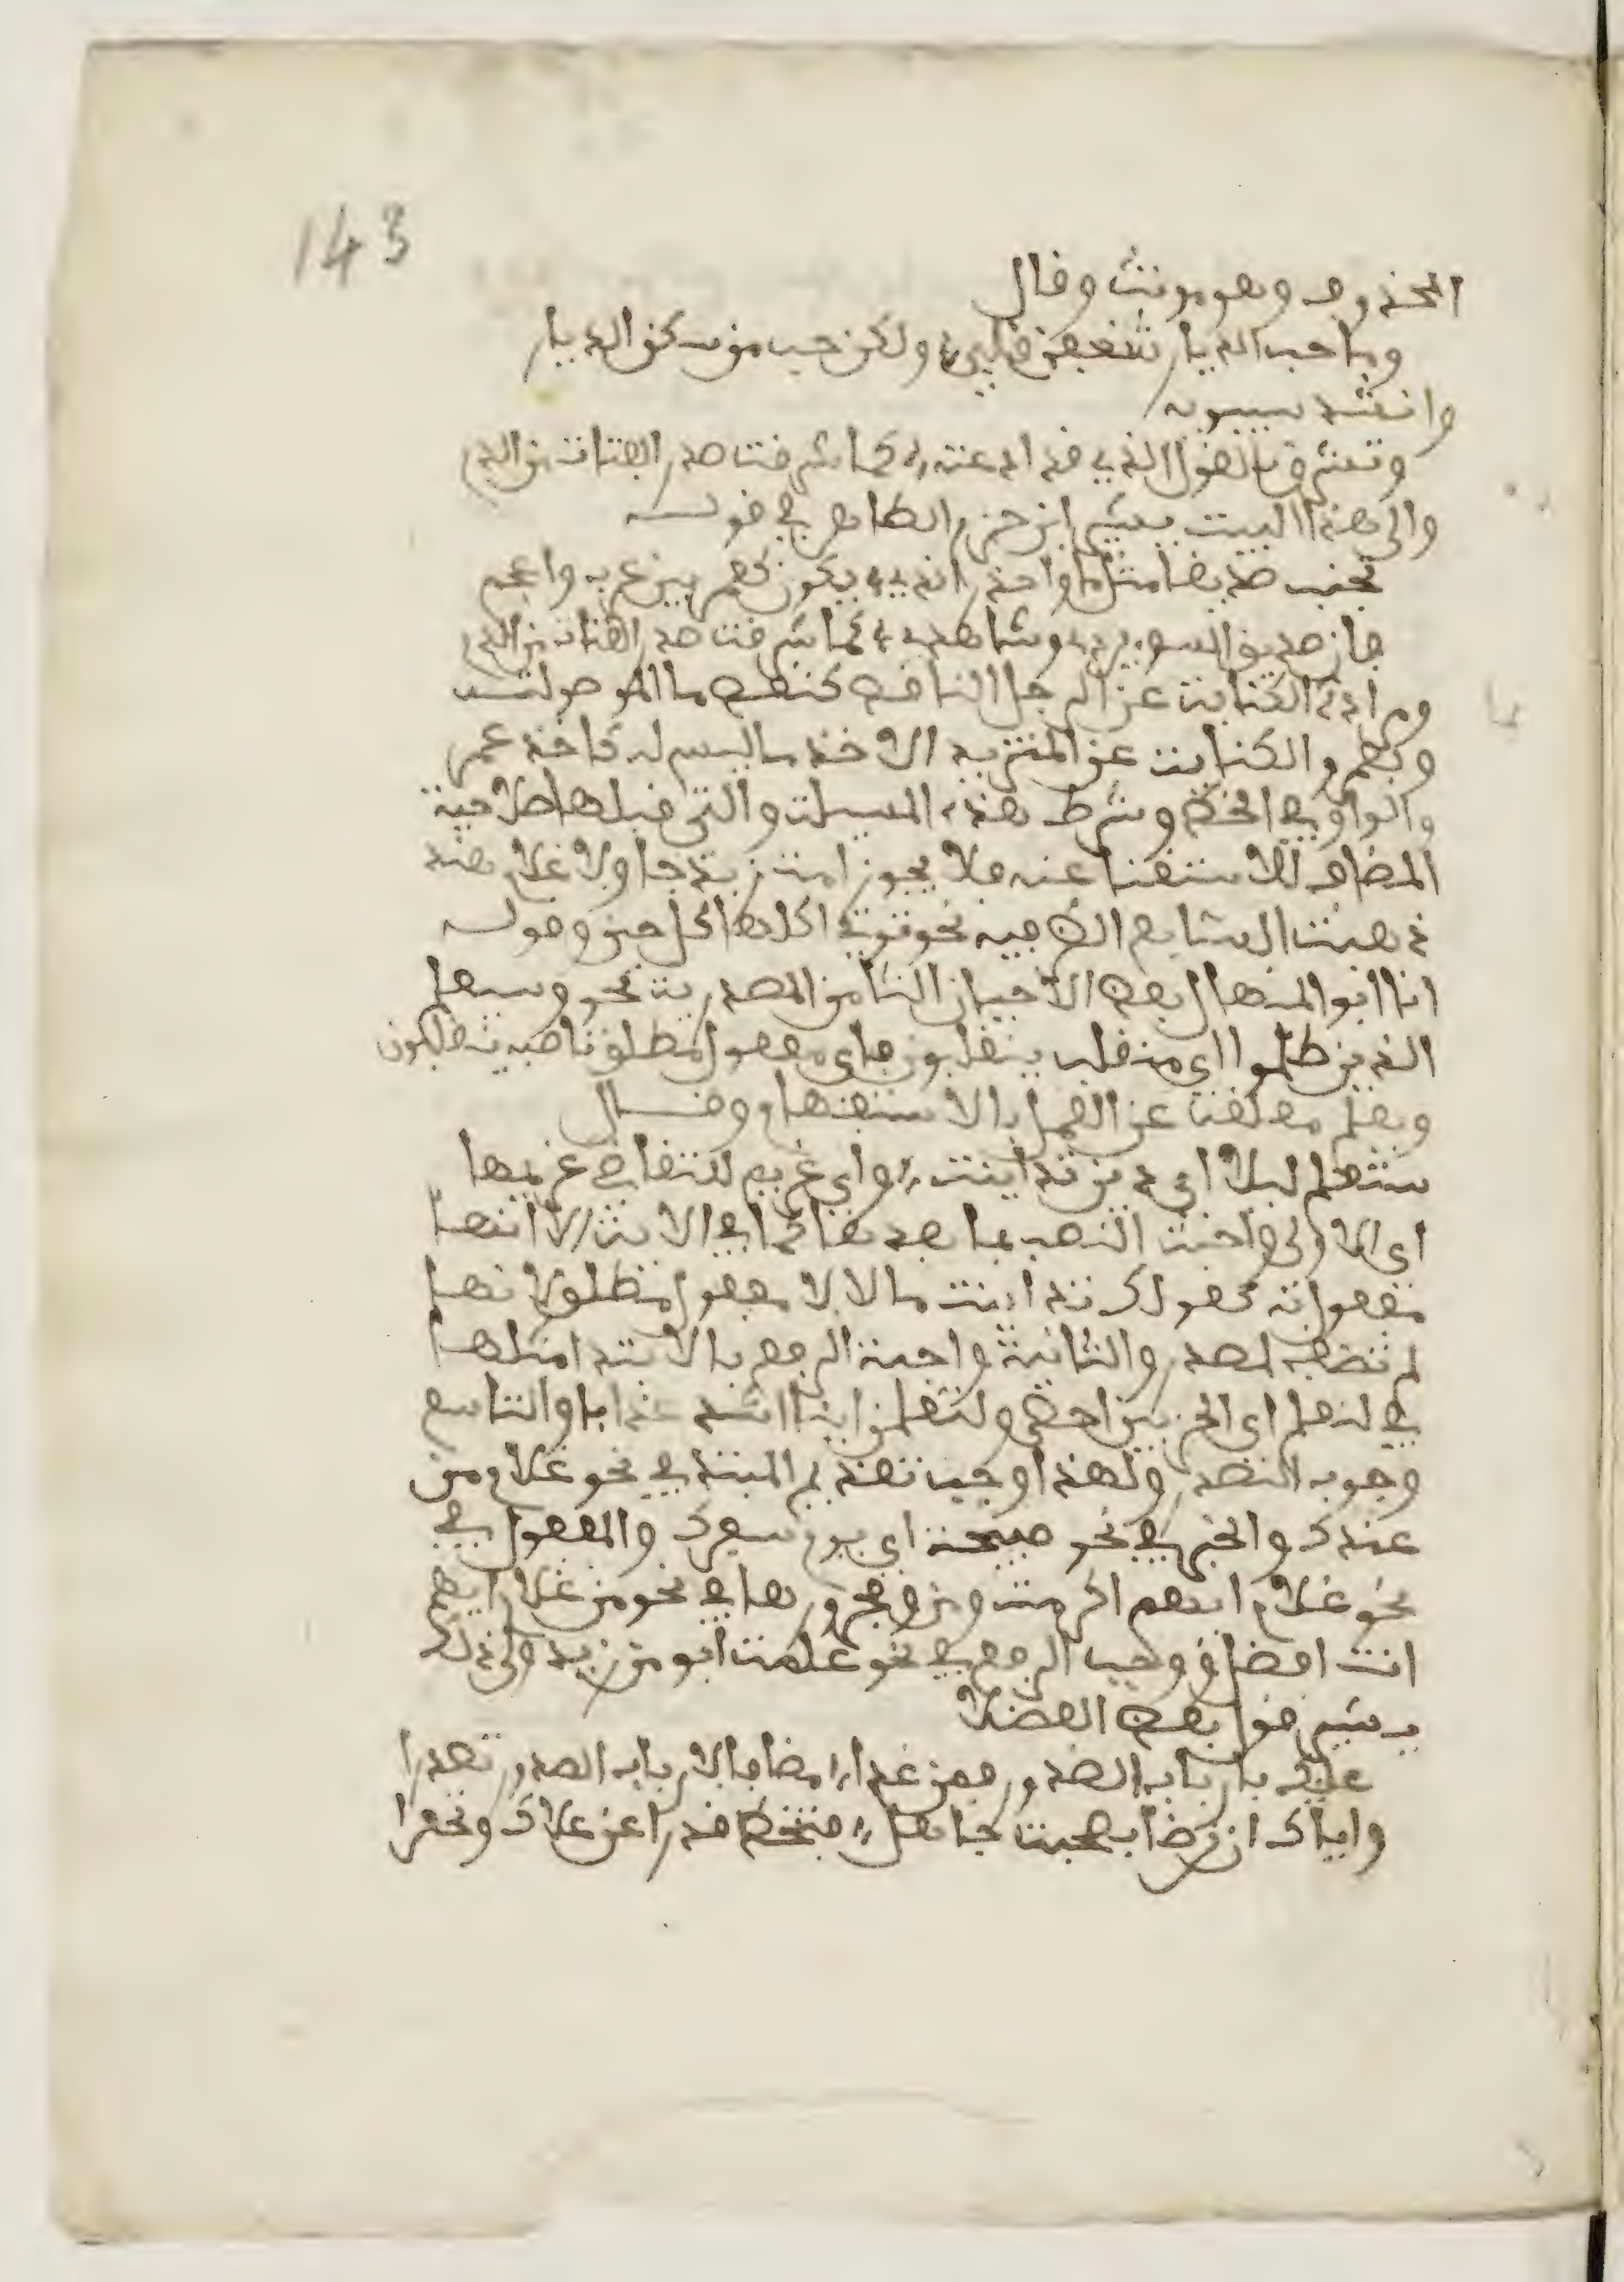 143
المحذوف وهو مونث وقال
وما حب الديار شغفن قلبي ولكن حب من سكن الديار
وانشد سيبويه
وتشرق بالقول الذي قد اذعته كما شرقت صدر القناة من الدم
والى هذا البيت يشير ابن حزم الظاهري في قوله
تجنب صديقا مثل ما واحذر الذي يكون كعمرو بين عرب واعجم
فان صديق السوء يزري وشاهدي كما شرقت صدر القناة من الدم
ومراده بالكناية عن الرجل الناقص كنقص ما الموصولة
وبعمرو الكناية عن المتزيد الاخذ ما ليس له كاخذ عمرو
الواو في الخط وشرط هذه المسيلة والتي قبلها صلاحية
المضاف للاستغنا عنه فلا يجوز امة زيد جا ولا غلام هند
ذهبت السابع الظرفية نحو توتي اكلها كل حين وقوله
انا ابو المنهال بعض الاحيان الثامن المصدرية نحو وسيعلم
الذين ظلموا اي منقلب ينقلبون فاي مفعول مطلق ناصبه ينقلبون
ويعلم معلقة عن العمل بالاستفهام وقال
ستعلم ليلا اي دين تداينت واي غريم للتقاضي غريمها
اي الاولى واجبة النصب بما بعدها كما في الاية الا انها
مفعول به كقولك تداينت مالا لا مفعول مطلق لانها
لم تضف لمصدر والثانية واجبة الرفع بالابتدا مثلها
في لنعلم اي الحزبين احصى ولتعلمن اينا اشد عذابا والتاسع
وجوب التصدر ولهذا وجب تقديم المبتدا في نحو غلام من
عندك والخبر في نحو صبيحة اي يوم سفرك والمفعول في
نحو غلام ايهم اكرمت ومن ومجرورها في نحو من غلام ايهم
انت افضل ووجب الرفع في نحو علمت ابو من زيد والى ذلك
يشير قول بعض الفضلا
عليك بارباب الصدور فمن غدا مضافا لارباب الصدور تصدرا
واياك ان ترضا بصحبة جاهل فتنحط قدرا عن علاك وتحقرا